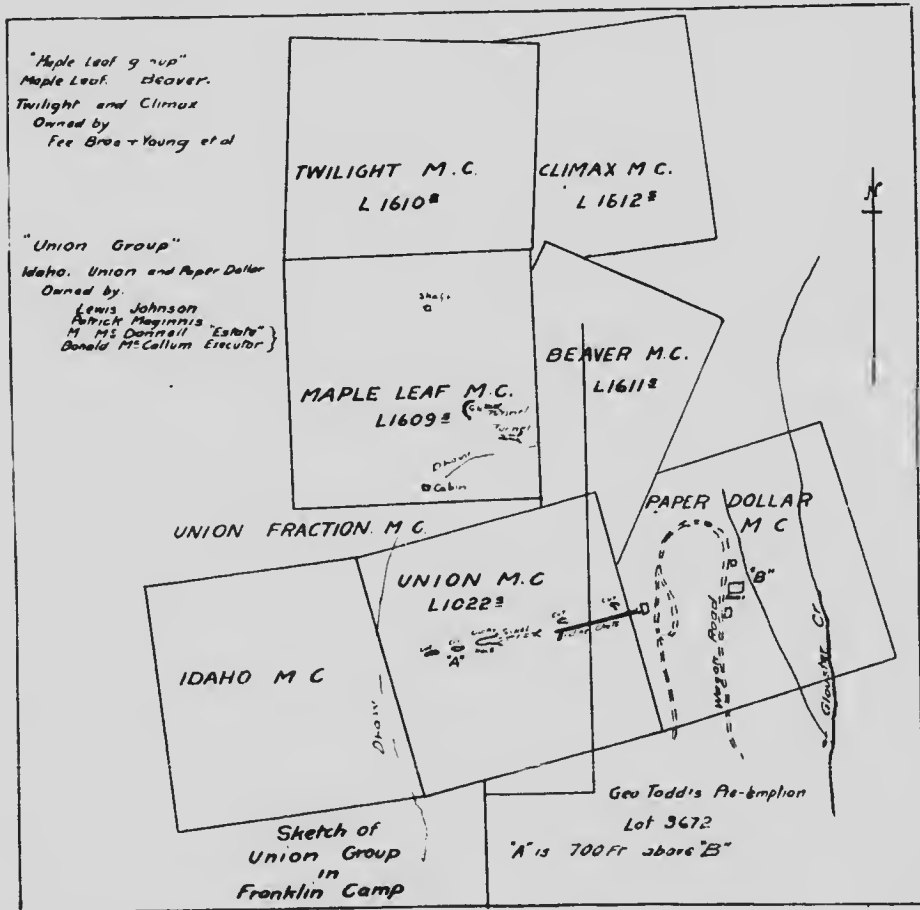 "Maple Leaf group"
Maple Leaf. Beaver.
Twilight and Climax
Owned by
Fee Bros + Young et al
"Union Group"
Idaho. Union and Paper Dollar
Owned by.
Lewis Johnson
Patrick Maginnis
M McDonnell "Estate"}
Donald McCallum Executor}
TWILIGHT M.C.
L 1610 s
CLIMAX M C.
L 1612 s
N
Shaft
BEAVER M.C.
L1611 s
MAPLE LEAF M.C.
L1609 s
Tunnel
Tunnel
Draw
Cabin
PAPER DOLLAR
M C
UNION FRACTION. M C.
UNION M.C
L1022 s
"B"
Cut
Cut
"A"
IDAHO M C
Draw
Wagon Road
Gloucster Cr
Geo Todd's Pre-emption
Lot 3672
"A" is 700 Ft above "B"
Sketch of
Union Group
in
Franklin Camp